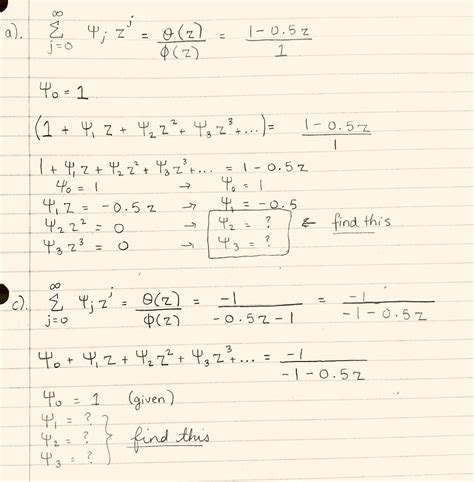 a). ∞ Σ j=0 Ψj z^j = θ(z)/Φ(z) = 1-0.5z/1
Ψ0 = 1
(1 + Ψ1 z + Ψ2 z² + Ψ3 z³ + ...) = 1-0.5z/1
1 + Ψ1 z + Ψ2 z² + Ψ3 z³ + ... = 1-0.5z
Ψ0 = 1 → Ψ0 = 1
Ψ1 z = -0.5z → Ψ1 = -0.5
Ψ2 z² = 0 → Ψ2 = ? ← find this
Ψ3 z³ = 0 → Ψ3 = ?
c). ∞ Σ j=0 Ψj z^j = θ(z)/Φ(z) = -1/-0.5z-1 = -1/-1-0.5z
Ψ0 + Ψ1 z + Ψ2 z² + Ψ3 z³ + ... = -1/-1-0.5z
Ψ0 = 1 (given)
Ψ1 = ?
Ψ2 = ? } find this
Ψ3 = ?